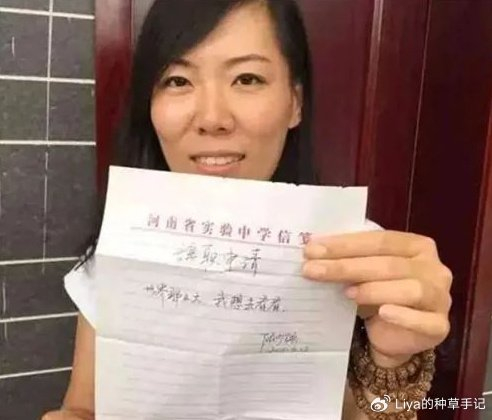 河南省实验中学信笺
辞职申请
世界那么大,我想去看看。
@Liya的种草手记